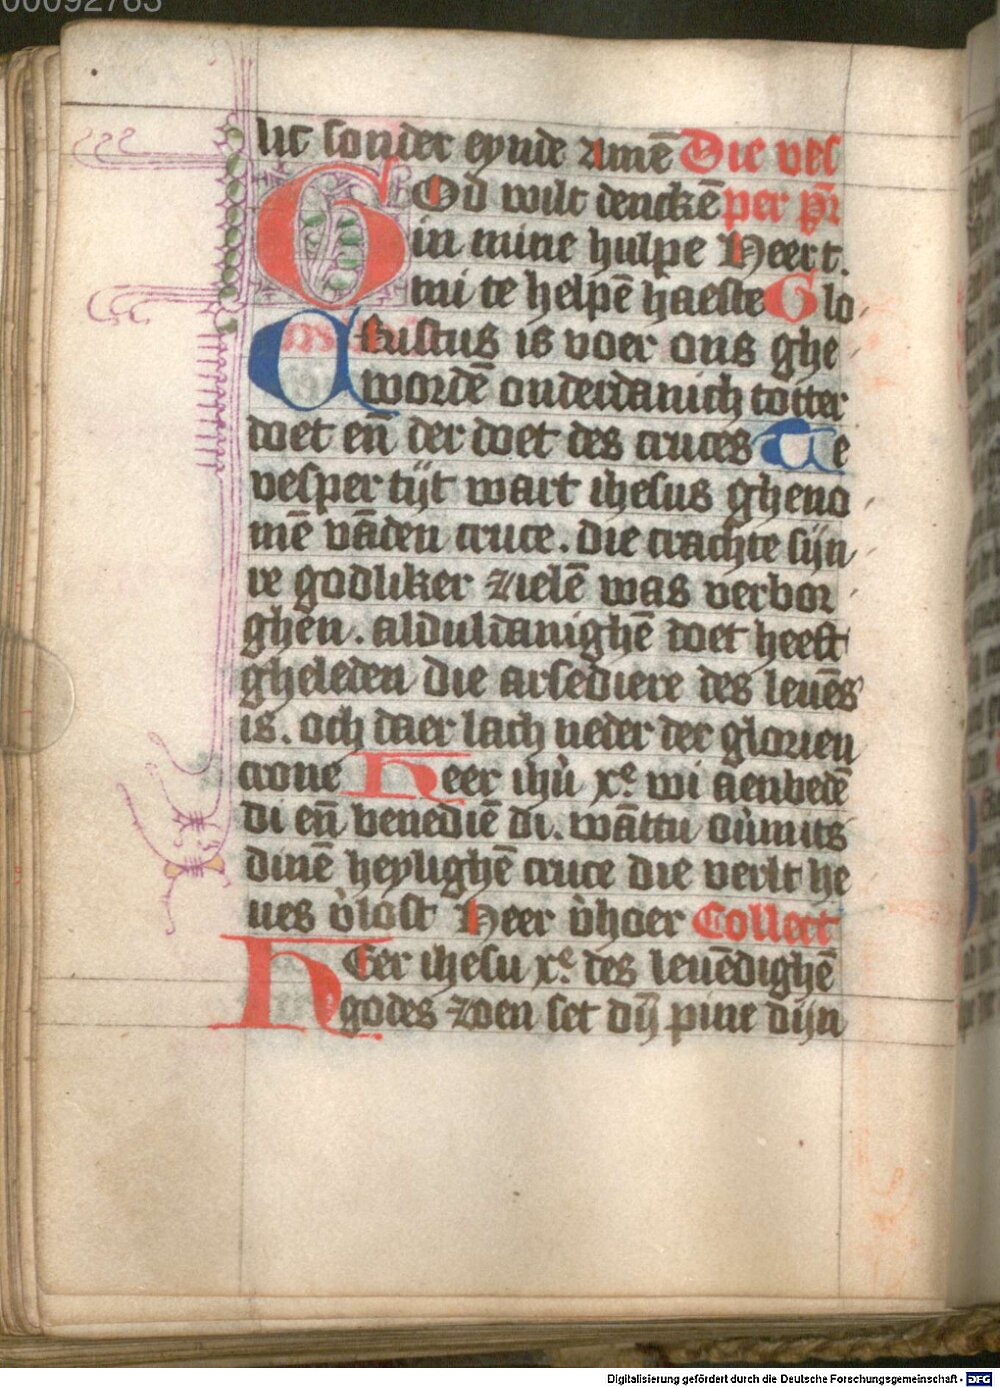 00092783
lic sonder eynde Amē Die ves
GOd wilt denckē per pr̄
in mine hulpe Heer t.
mi te helpē haeste Glo
Cristus is voer ons ghe
wordē onderdanich totter
doet eñ der doet des cruces Te
vesper tijt wart ihesus gheno
mē vāden cruce. die crachte sijn
re godliker zielē was verbor
ghen. alduldanighē doet heeft
gheleden die arsediere des leuēs
is. och daer lach neder der glorien
crone Heer ihū xe wi aenbedē
di eñ benediē di. wāttu ou̇mits
dinē heylighē cruce die verlt he
ues v̇lost Heer v̇hoer Collect
HEer ihesu xe des leuēdighē
godes zoen set dij̄ pine dijn
Digitalisierung gefördert durch die Deutsche Forschungsgemeinschaft - DFG